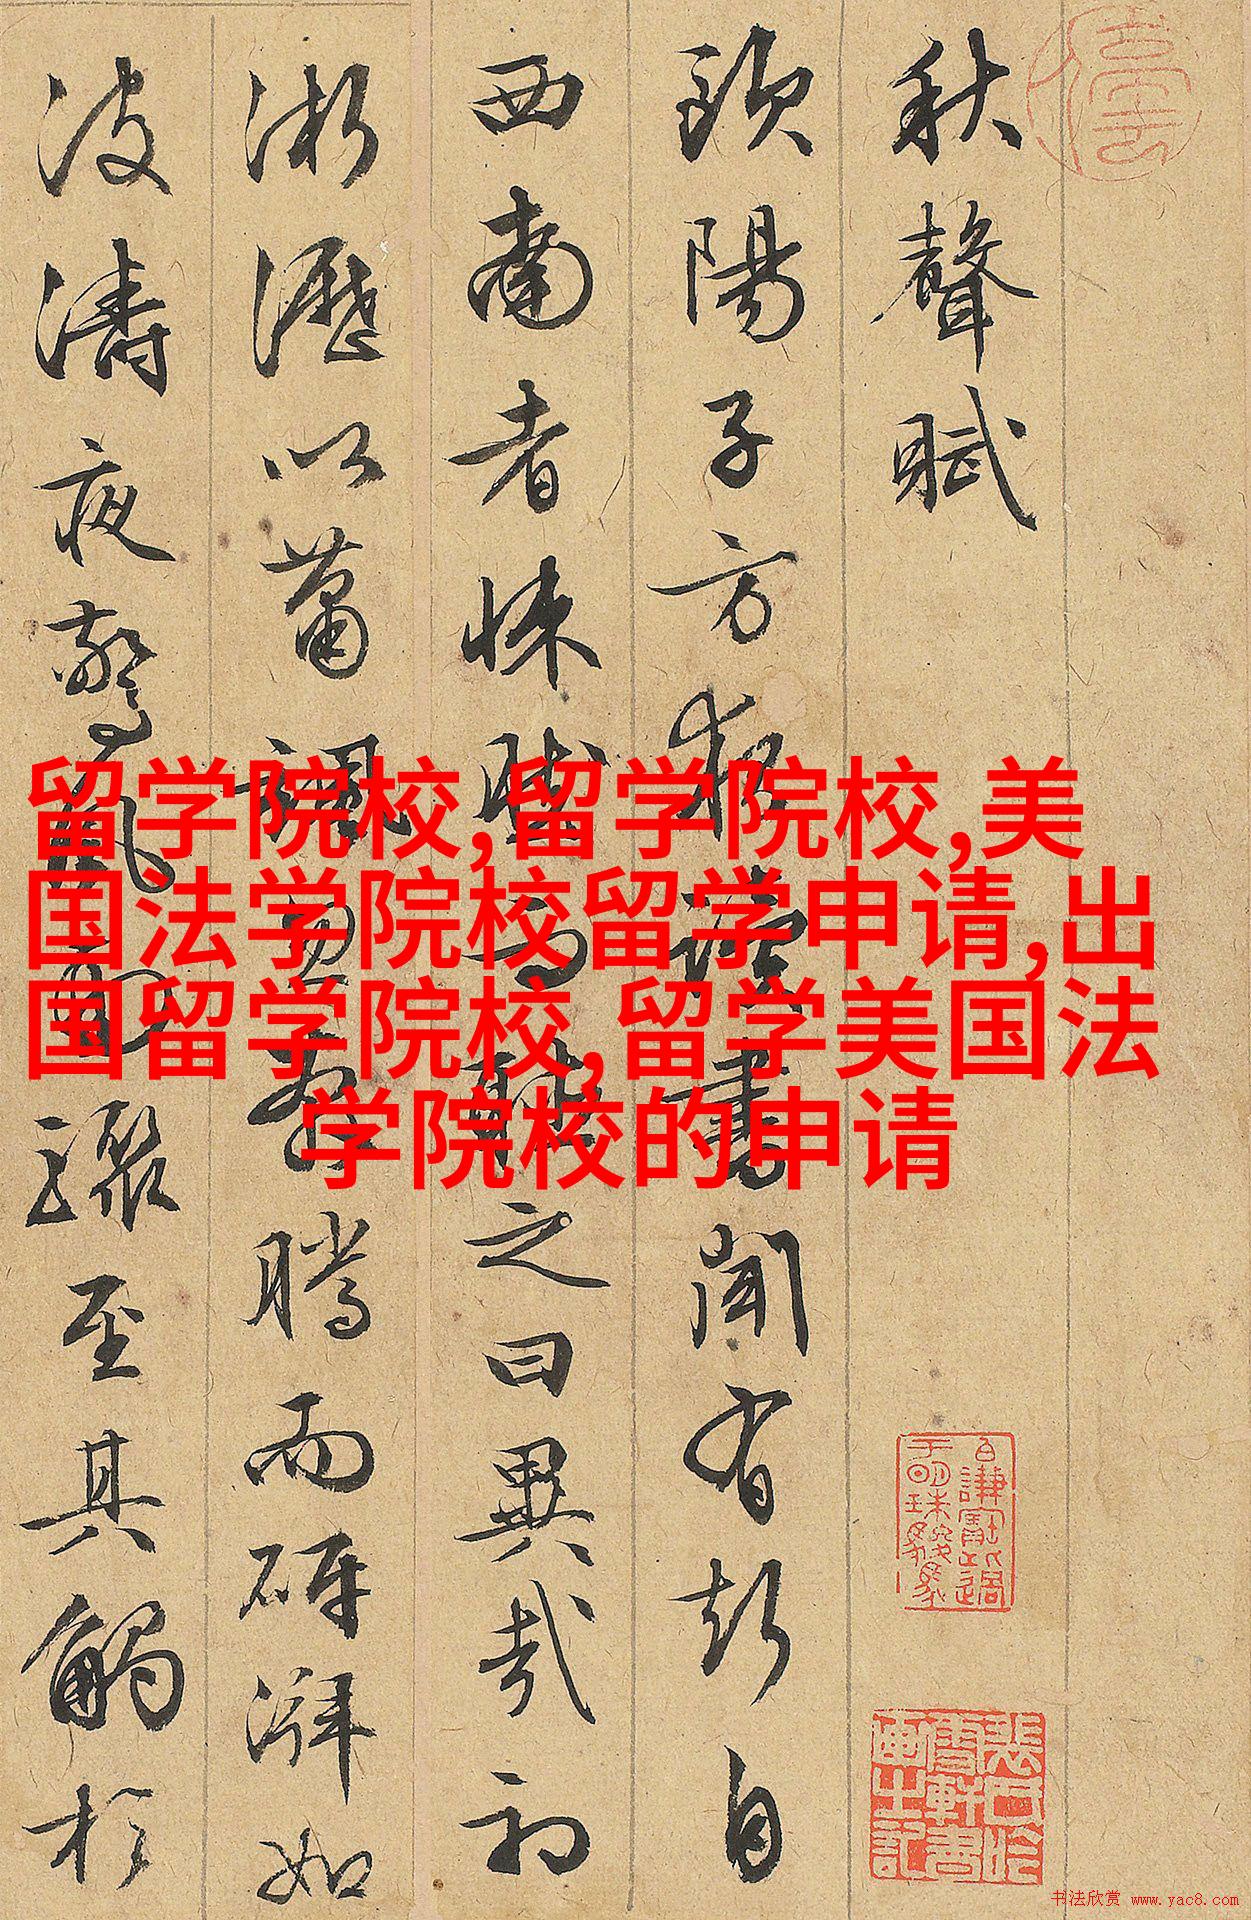 秋聲賦
歐陽子方夜讀書聞有聲自
西南者悚然而聽之曰異哉初
淅瀝以蕭颯忽奔騰而砰湃如
波濤夜驚風雨驟至其觸於
留学院校,留学院校,美
国法学院校留学申请,出
国留学院校,留学美国法
学院校的申请
书法欣赏 www.yac8.com